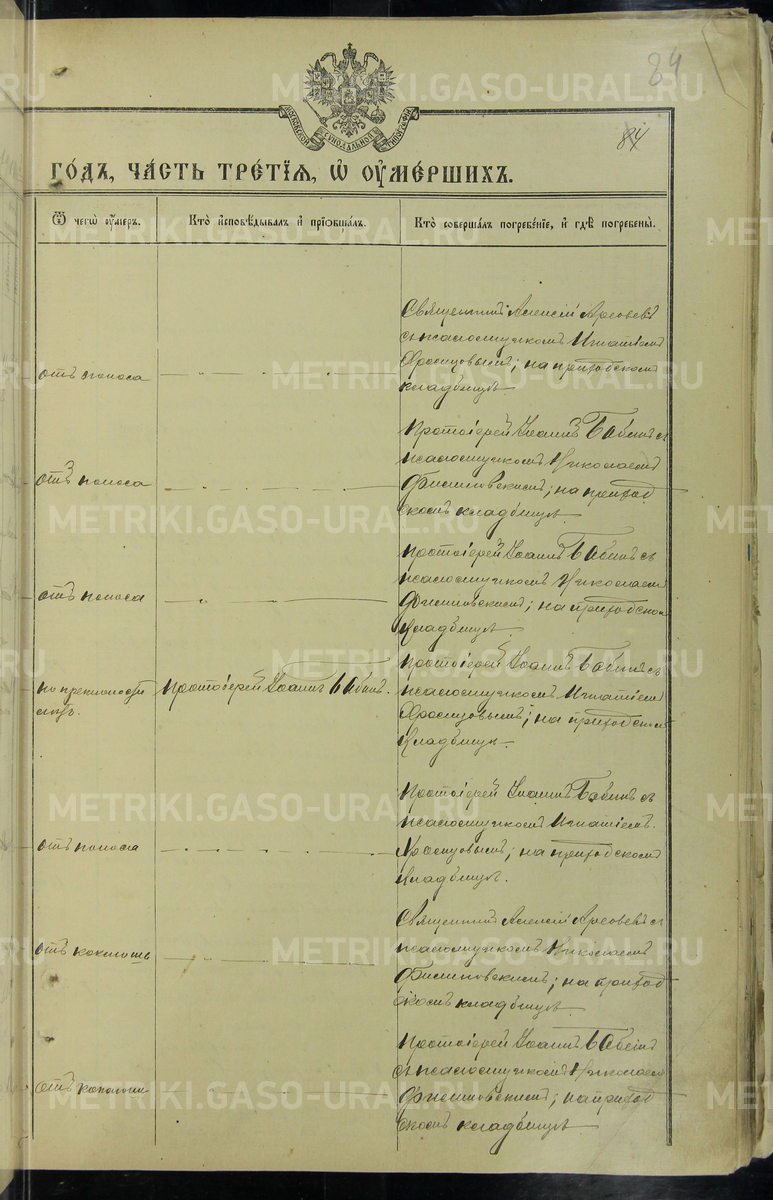 84
84
МОСКОВСКОЙ СѴНОДАЛЬНОЙ ТИПОГРАФІИ
METRIKI.GASO-URAL.RU
го́дъ, ча́сть тре́тїѧ, ѡ҆ ᲂу҆ме́ршихъ.
Ѿ чегѡ̀ ᲂу҆́меръ.
Кто̀ и҆сповѣ́дывалъ и҆ прїѡбща́лъ.
Кто̀ соверша́лъ погребе́нїе, и҆ гдѣ̀ погребены̀.
отъ поноса
Священникъ Алексій
съ псаломщикомъ Игнатіемъ
Хромцовымъ; на приходскомъ
кладбищѣ.
отъ поноса
Протоіерей Іоаннъ Бабинъ съ
псаломщикомъ Николаемъ
Филипповскимъ; на приход
скомъ кладбищѣ.
отъ поноса
Протоіерей Іоаннъ Бабинъ съ
псаломщикомъ Николаемъ
Филипповскимъ; на приходском
кладбищѣ.
Протоіерей Іоаннъ Бабинъ.
Протоіерей Іоаннъ Бабинъ съ
псаломщикомъ Игнатіем
Хромцовымъ; на приходском
кладбищѣ.
отъ поноса
Протоіерей Іоаннъ Бабинъ съ
псаломщикомъ Игнатіемъ
Хромцовымъ; на приходскомъ
кладбищѣ.
отъ коклюшъ
Священникъ Алексій съ
псаломщикомъ Николаемъ
Филипповскимъ; на приход
скомъ кладбищѣ.
отъ
Протоіерей Іоаннъ Бабинъ
съ псаломщикомъ Николаем
Филипповскимъ; на приход
скомъ кладбищѣ.